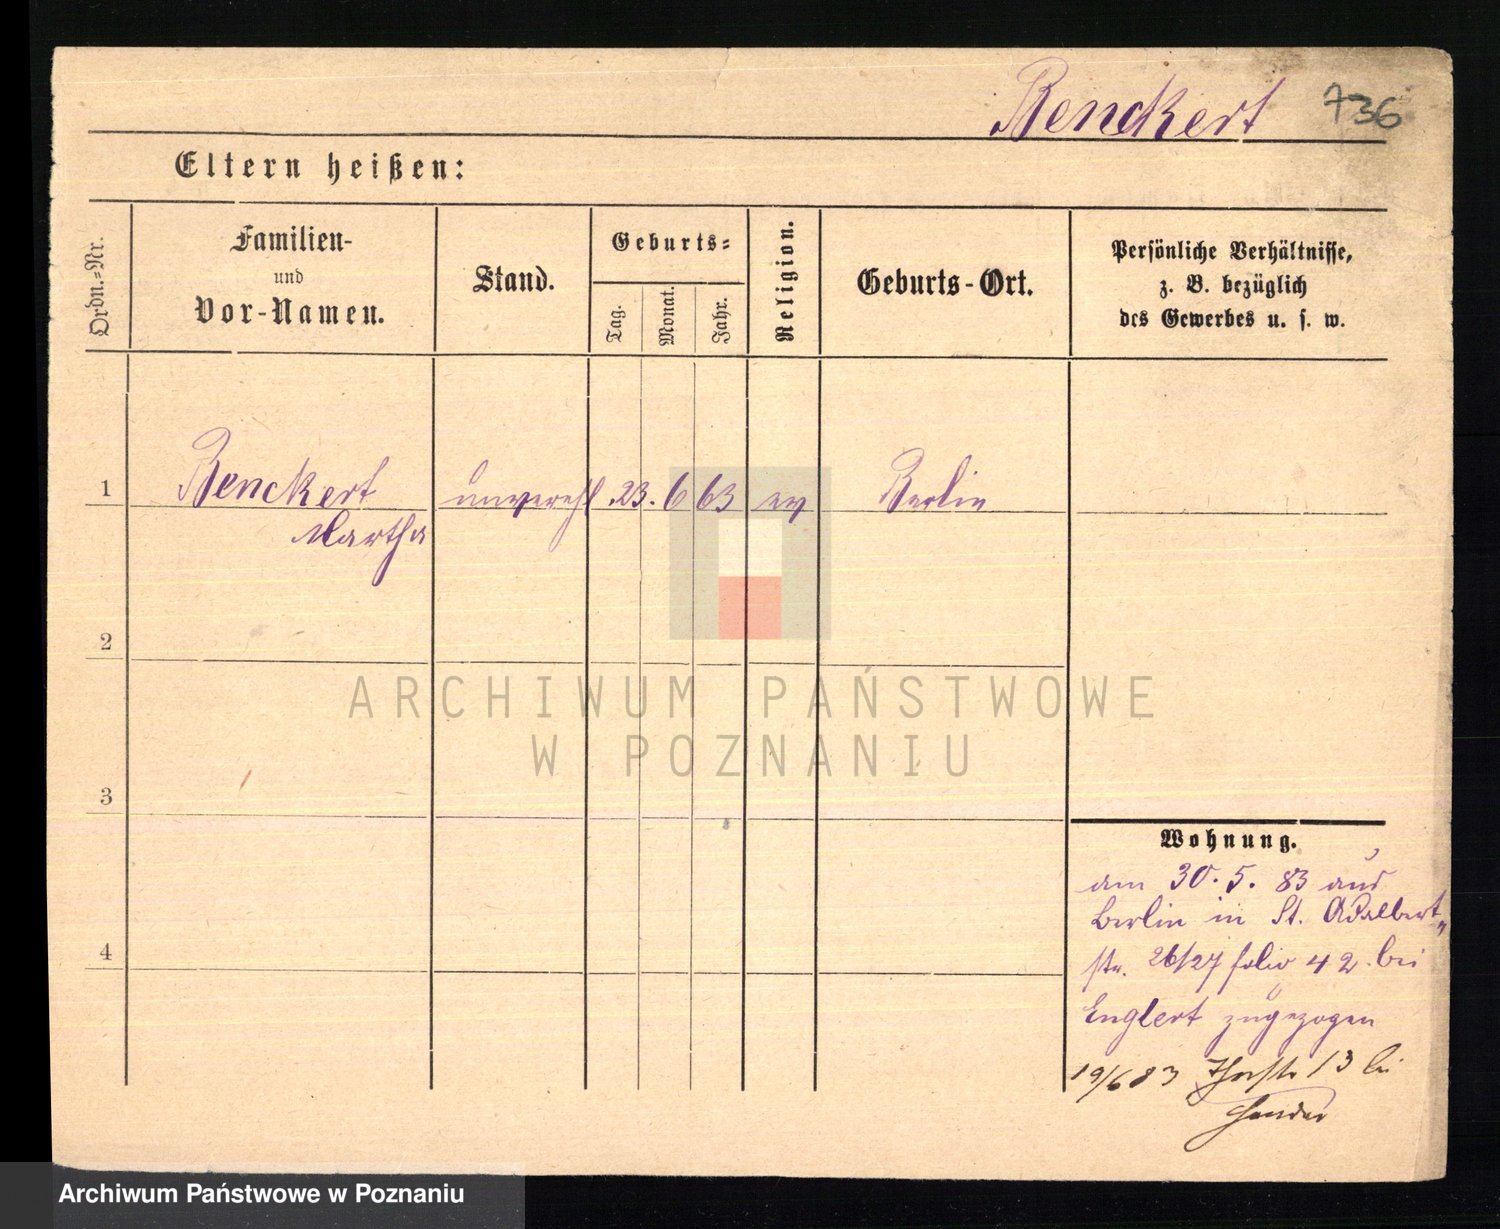 Renckert 736
Eltern heißen:
Ordn.=Nr.
Familien-
und
Vor-Namen.
Stand.
Geburts=
Tag.
Monat.
Jahr.
Religion.
Geburts-Ort.
Persönliche Verhältnisse,
z. B. bezüglich
des Gewerbes u. s. w.
1 Renckert unverehl 23. 6 63 ev Berlin
Martha
2
ARCHIWUM PAŃSTWOWE
W POZNANIU
3
Wohnung.
am 30. 5. 83 aus
Berlin in St. Adalbert„
4
str. 26/27 folio 42 bei
Englert zugezogen
19/6 83 13 bei
Archiwum Państwowe w Poznaniu